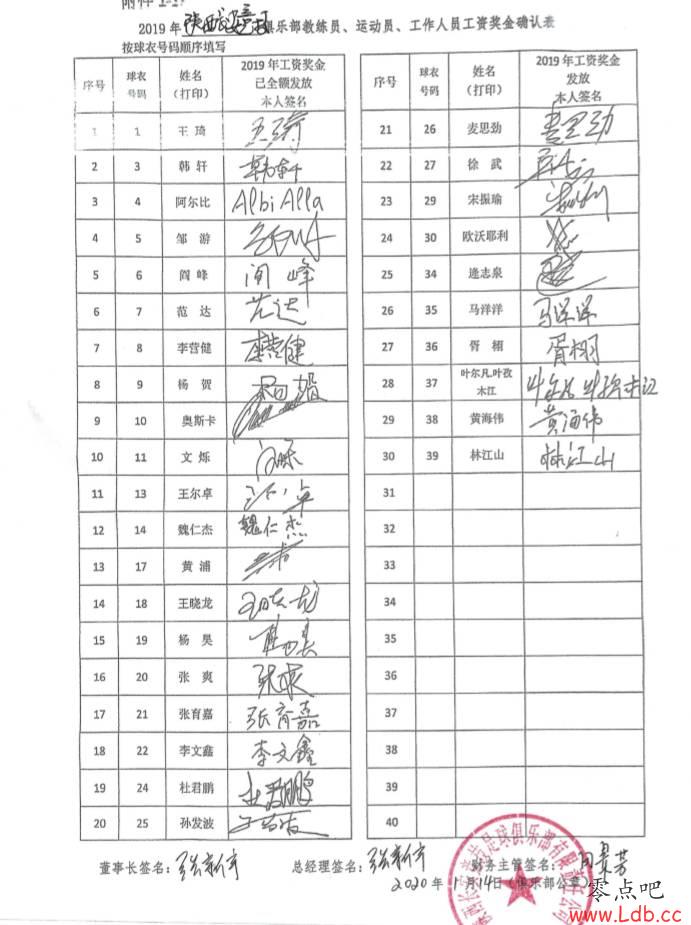 附件1-2
2019 年陕西长安竞技俱乐部教练员、运动员、工作人员工资奖金确认表
按球衣号码顺序填写
序号 球衣号码 姓名（打印） 2019 年工资奖金已全额发放本人签名
1 1 王 琦 王琦
2 3 韩 轩 韩轩
3 4 阿尔比 Albi Alla
4 5 邹 游
5 6 阎 峰 闫 峰
6 7 范 达 范达
7 8 李营健 李营健
8 9 杨 贺
9 10 奥斯卡
10 11 文 烁 文烁
11 13 王尔卓
12 14 魏仁杰 魏仁杰
13 17 黄 浦
14 18 王晓龙 王晓龙
15 19 杨 昊 杨昊
16 20 张 爽 张爽
17 21 张育嘉 张育嘉
18 22 李文鑫 李文鑫
19 24 杜君鹏 杜君鹏
20 25 孙发波
序号 球衣号码 姓名（打印） 2019 年工资奖金发放本人签名
21 26 麦思劲 麦思劲
22 27 徐 武
23 29 宋振瑜
24 30 欧沃耶利
25 34 逄志泉
26 35 马洋洋 马洋洋
27 36 胥 栩 胥栩
28 37 叶尔凡.叶孜木江
29 38 黄海伟 黄海伟
30 39 林江山 林江山
31
32
33
34
35
36
37
38
39
40
董事长签名： 总经理签名： 财务主管签名：
2020年1月14日（俱乐部公章）
零点吧
www.Ldb.cc